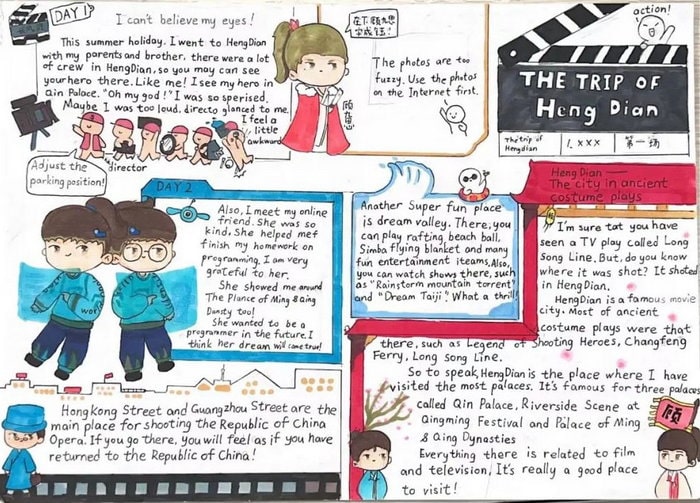 DAY 1
I can't believe my eyes!
This summer holiday. I went to HengDian
with my parents and brother. there were a lot
of crew in HengDian, so you may can see
your hero there. Like me! I see my hero in
Qin Palace. "Oh my god!" I was so sperised.
Maybe I was too loud. directo glanced to me.
I feel a
little
awkward
director
Adjust the
parking position!
The photos are too
fuzzy. Use the photos
on the Internet first.
action!
THE TRIP OF
Heng Dian
The trip of
Hengdian
1. xxx
第一场
DAY 2
Also, I meet my online
friend. She was so
kind. She helped me
finish my homework on
programming. I am very
grateful to her.
She showed me around
The Plance of Ming & Qing
Donsty too!
She wanted to be a
programmer in the future. I
think her dream will come true!
Another Super fun place
is dream valley. There, you
can play rafting, beach ball.
Simba flying blanket and many
fun entertainment iteams, Also,
you can watch shows there, such
as "Rainstorm mountain torrent"
and "Dream Taiji". What a thrill!
Heng Dian —
The city in ancient
costume plays
I'm sure tat you have
seen a TV play called Long
Song Line. But, do you know
where it was shot? It shoted
in HengDian.
HengDian is a famous movie
city. Most of ancient
costume plays were that
there, such as Legend of Shooting Heroes, Changfeng
Ferry, Long song Line.
So to speak, HengDian is the place where I have
visited the most palaces. It's famous for three palaces
called Qin Palace, Riverside Scene at
Qingming Festival and Palace of Ming
& Qing Dynasties
Everything there is related to film
and television, It's really a good place
to visit!
顾
HongKong Street and Guangzhou Street are the
main place for shooting the Republic of China
Opera. If you go there, you will feel as if you have
returned to the Republic of China!